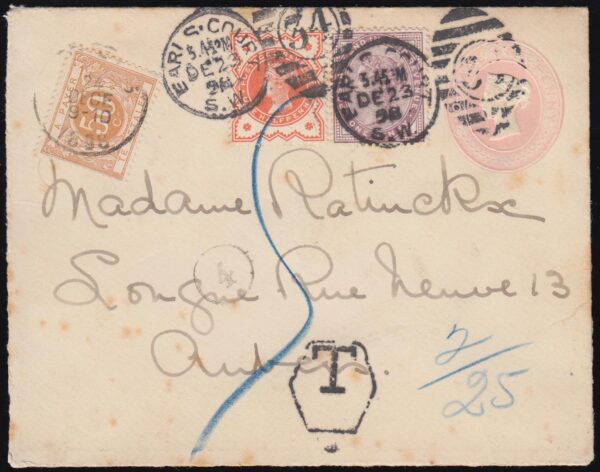 EARL'S COURT
5.45 PM
DE 23
98
S.W.
54
EARL'S COURT
5.45 PM
DE 23
98
S.W.
50
1898
Madame Ratinckx
4
Longue Rue Neuve 13
Anvers
T
2/25